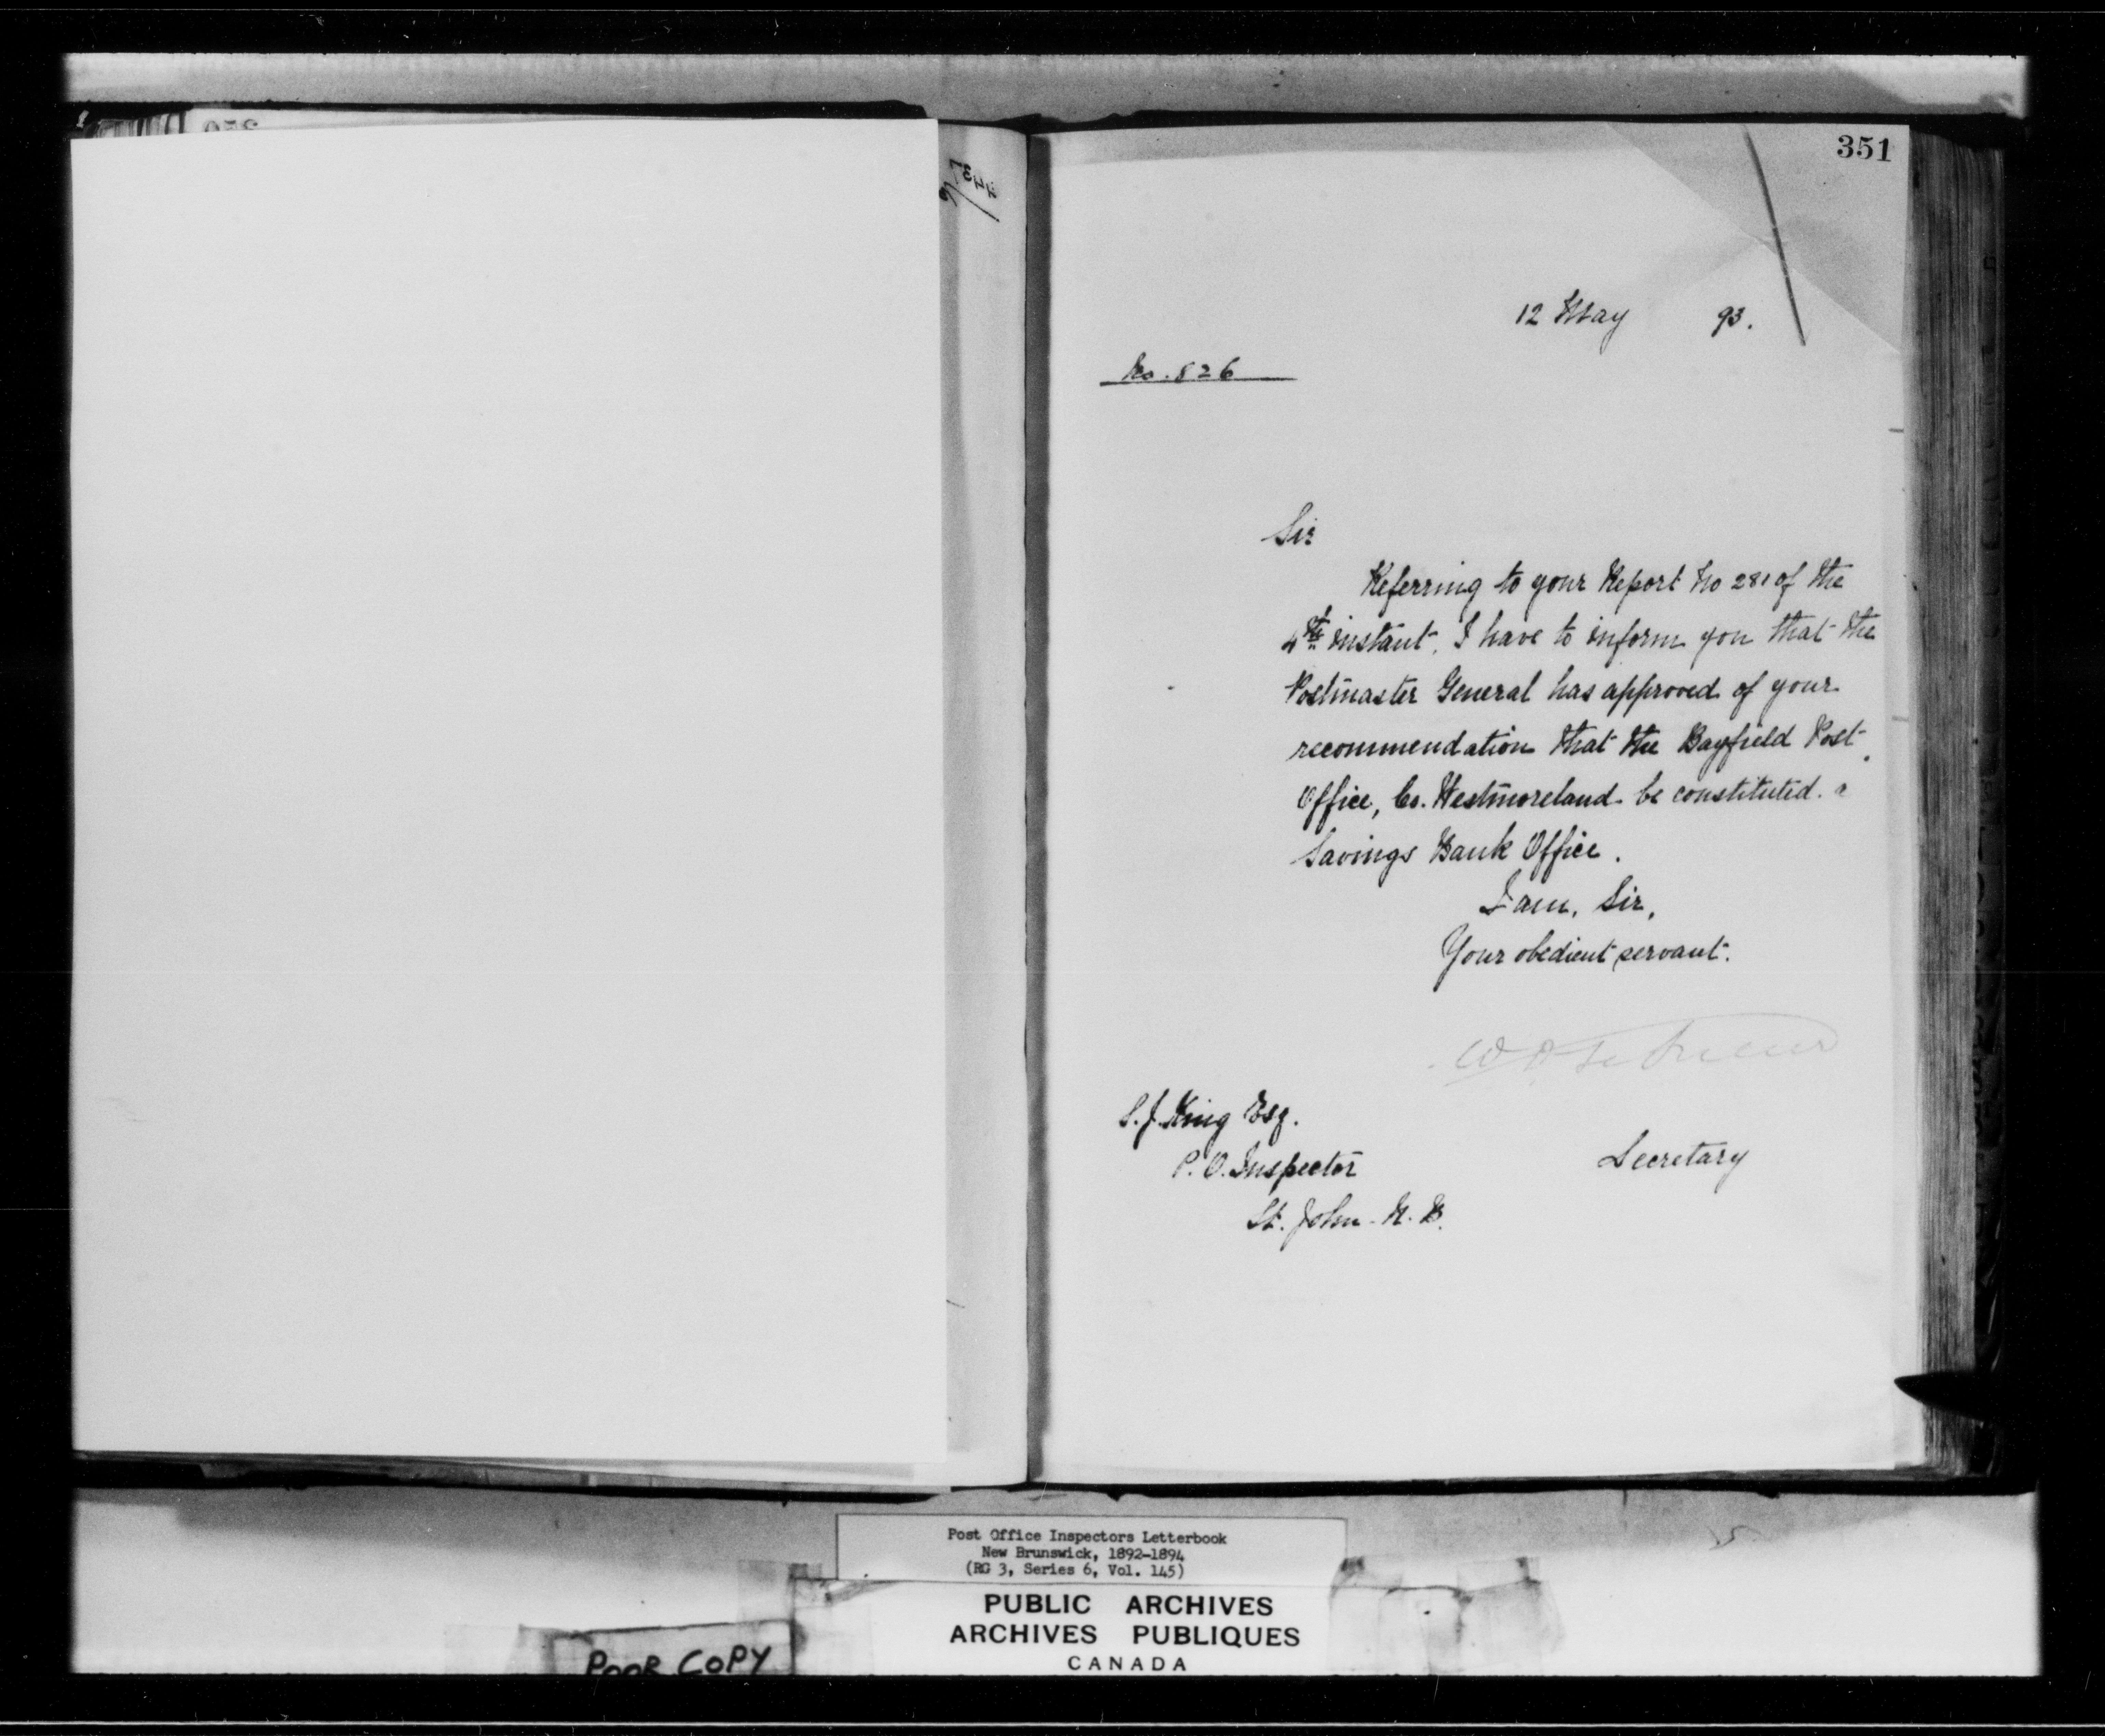 351
12 May 93.
No. 826
Sir
Referring to your Report No 281 of the
4th instant, I have to inform you that the
Postmaster General has approved of your
recommendation that the Bayfield Post
Office, Co. Westmoreland be constituted a
Savings Bank Office.
I am, Sir,
Your obedient servant.
S. J. King Esq.
P. O. Inspector
Secretary
St. John N. B.
Post Office Inspectors Letterbook
New Brunswick, 1892-1894
(RG 3, Series 6, Vol. 145)
PUBLIC ARCHIVES
ARCHIVES PUBLIQUES
CANADA
POOR COPY